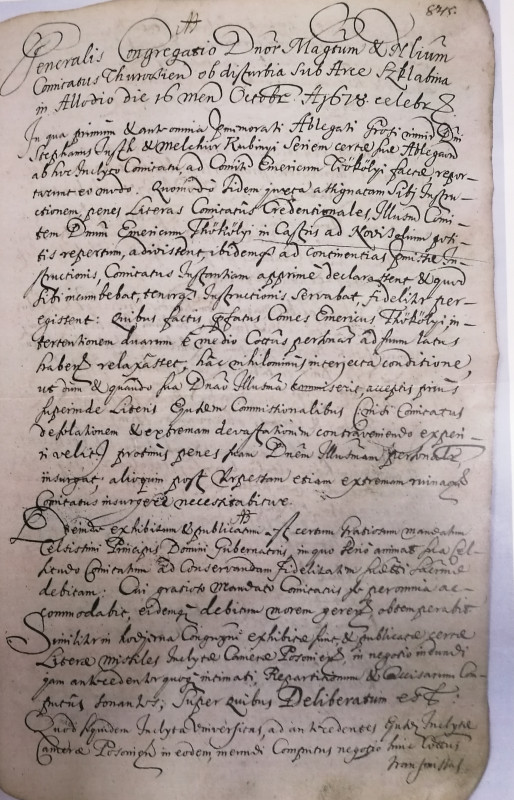 848.
Generalis Congregatio Dnor Magtum & Nlium
Comitatus Thurocien ob disturbia Sub Arce Szklabina
in Allodio die 16 men Octobr A 1678 celebr
In qua primum & ante omnia Ablegati
Stephanus Justh & Melchior Rubinyi Seriem certae suae Ablegaon
ab hoc Inclyto Comitatu, ad Comitem Emericum Thököly factae repor-
tarunt eo modo. Quomodo iidem juxta assignatam sibi Instru-
ctionem, penes Literas Comitatus Credentionales, Illusm Comi-
tem Dnum Emericum Thököly in Castris ad posi-
tis repertum, adivissent, ibidemq ad continentias In-
structionis, Comitatus Instantiam apprime declarassent & quod
sibi incumbebat, tenorq Instructionis servabat, fideliter per-
egissent: Quibus factis pfatus Comes Emericus Thököly in-
tertentionem duarum e medio Coetus personar ad suum latus
haber relaxasset, hac nihilominus interjecta conditione,
ut dum & quando sua Dnao Illusma commiserit, acceptis prius
superinde Literis Ejusdem Commissionalibus Comitatus
desolationem & extremam devastationem contraveniendo experi-
ri velit) protinus penes suam Dnem Illusmam personaliter
insurgat, alioquin post etiam extremam ruinaq
Comitatus insurgere necessitabitur.
Deinde exhibitum & publicatum est certum gratiosum mandatum
Celsissimi Principis Domini Gubernatoris, in quo serio animat sua Cel-
situdo Comitatum ad Conservandam fidelitatem
debitam: Cui gratioso Mandato Comitatus se peromnia ac-
commodabit, eidemq debitum morem gerer obtemperabit
Similiter in hodierna Congregne exhibitae sunt & publicatae certae
Literae missiles Inclytae Camerae Posonien, in negotio
jam antecedenterquoq intimati, Repartitionum & Com-
putus sonantes; Super quibus Deliberatum est.
Quod siquidem Inclyta Universitas, ad antecedentes Ejusdem Inclytae
Camerae Posonien in eodem Computus negotio
transmissas